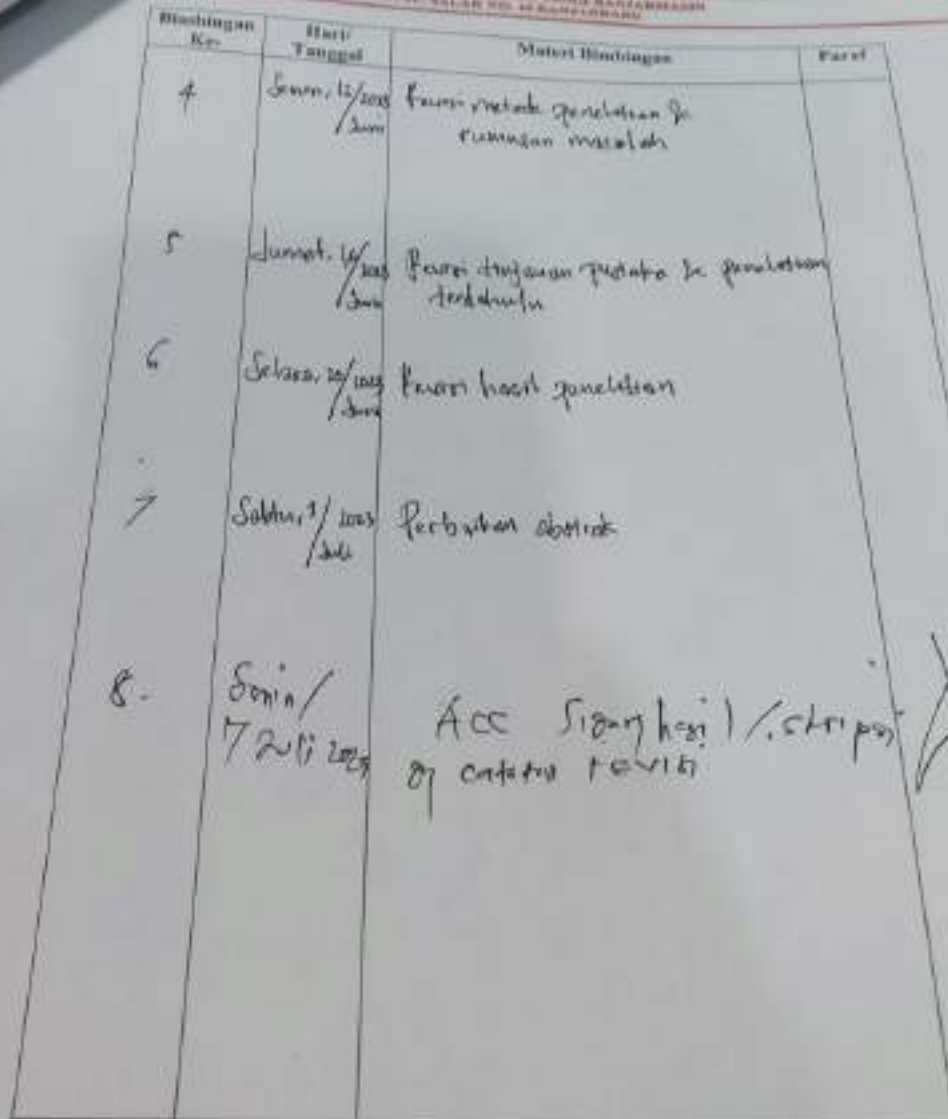 Bimbingan Ke- Hari/ Tanggal Materi Bimbingan Paraf
4 Senin, 12/2023 /Juni Revisi metode penelitian &
rumusan masalah
5 Jumat, 16/2023 /Juni Revisi tinjauan pustaka & penelitian
terdahulu
6 Selasa, 20/2023 /Juni Revisi hasil penelitian
7 Sabtu, 1/2023 /Juli Perbaikan abstrak
8. Senin/ ACC Sidang hasil/skripsi
7 Juli 2023 catatan revisi